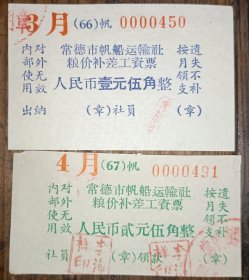 3月 (66)帆 0000450
内对 常德市帆船运输社 按遗
部外 粮价补差工資票 月失
使无 领不
用效 人民币壹元伍角整 支补
出纳 (章)社员 (章)
4月 (67)帆 0000491
内对 常德市帆船运输社 按遗
部外 粮价补差工資票 月失
使无 领不
用效 人民币贰元伍角整 支补
社员 (章)领款 (章)